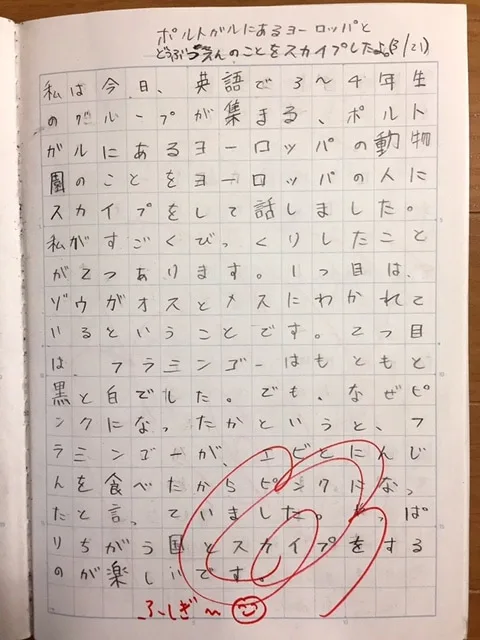 ポルトガルにあるヨーロッパと
どぶづえんのことをスカイプしたよ。(3/21)
私は今日、英語で3〜4年生
のグループが集まる、ポルト
ガルにあるヨーロッパの動物
園のことをヨーロッパの人に
スカイプをして話しました。
私がすごくびっくりしたこと
が2つあります。1つ目は、
ゾウがオスとメスにわかれて
いるということです。2つ目
は、フラミンゴーはもともと
黒と白でした。でも、なぜピ
ンクになったかというと、フ
ラミンゴーが、エビとにんじ
んを食べたからピンクになっ
たと言っていました。やっぱ
りちがう国とスカイプをする
のが楽しいです。
ふしぎ〜